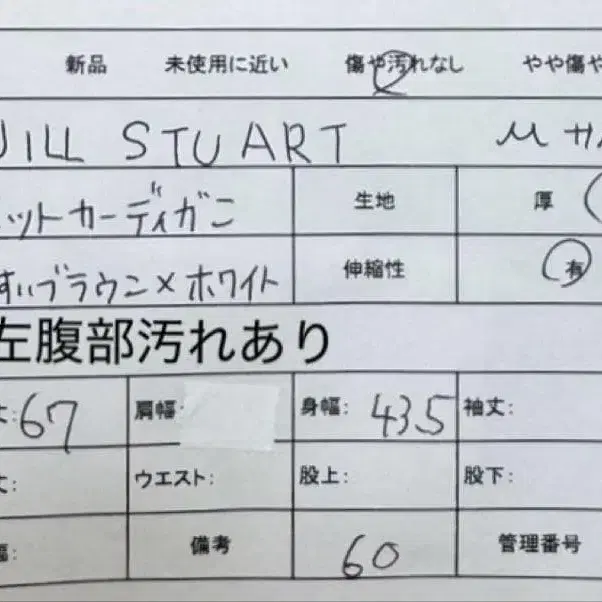 新品 未使用に近い 傷や汚れなし やや傷や
JILL STUART Mサイ
ニットカーディガン 生地 厚
うすいブラウン×ホワイト 伸縮性 有
左腹部汚れあり
丈:67 肩幅: 身幅: 43.5 袖丈:
丈: ウエスト: 股上: 股下:
幅: 備考 60 管理番号